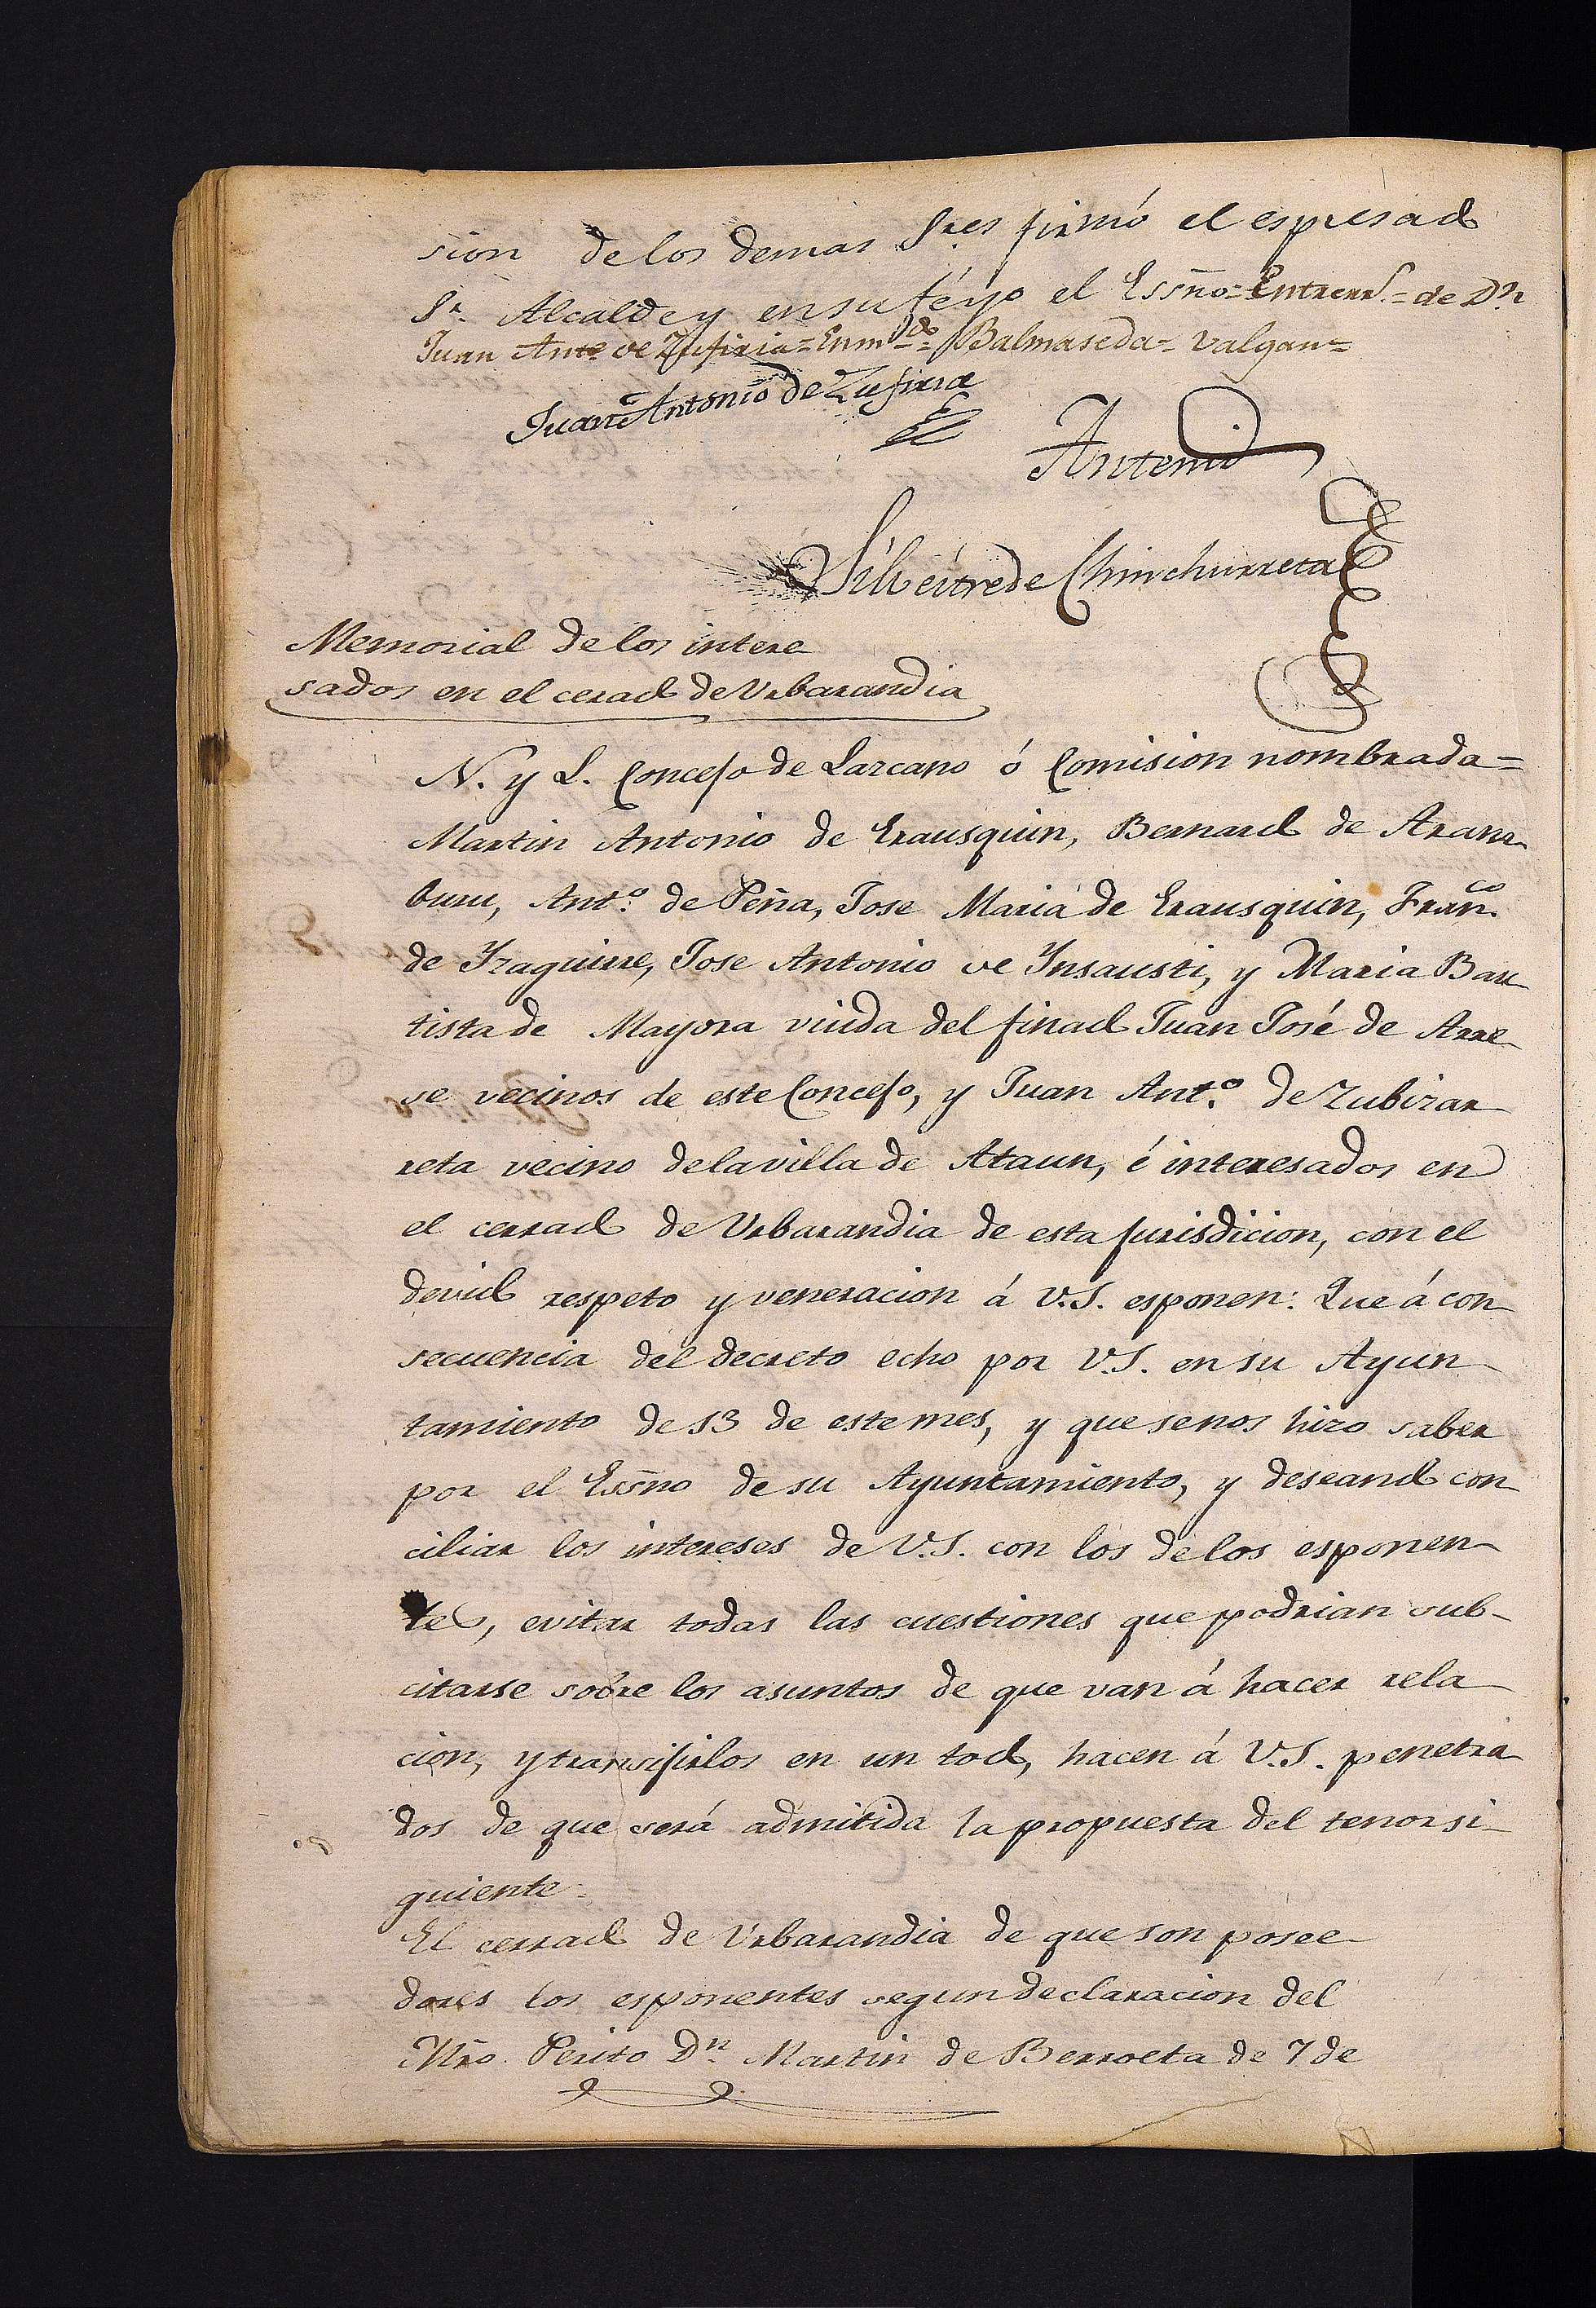 sion de los demas S.res firmó el espresado
S.r Alcalde y en su fé yo el Essño = Entrerr.s = de D.n
Juan Ant.o de Zufiria = Enm.do = Balmaseda = valgan =
Juan Antonio de Zufiria
Antemi
Silbestre de Chinchurreta
Memorial de los intere
sados en el cerado de Urbarandia
N. y L. Concejo de Lazcano ó Comision nombrada =
Martin Antonio de Erausquin, Bernardo de Aram
buru, Ant.o de Peña, Jose Maria de Erausquin, Fran.co
de Yzaguirre, Jose Antonio de Ynsausti, y Maria Bau
tista de Mayora viuda del finado Juan José de Arre
se vecinos de este Concejo, y Juan Ant.o de Zubizar
reta vecino de la villa de Ataun, é interesados en
el cerrado de Urbarandia de esta jurisdicion, con el
devido respeto y veneracion á V.S. esponen: Que á con
secuencia del decreto echo por V.S. en su Ayun
tamiento de 13 de este mes, y que se nos hizo saber
por el Essño de su Ayuntamiento, y deseando con
ciliar los intereses de V.S. con los de los esponen
tes, evitar todas las cuestiones que podrian sub-
citarse sobre los asuntos de que van á hacer rela
cion, y transijirlos en un todo, hacen á V.S. penetra
dos de que será admitida la propuesta del tenor si-
guiente.
El cerrado de Urbarandia de que son posee
dores los esponentes segun declaracion del
Mro. Perito D.n Martin de Berroeta de 7 de